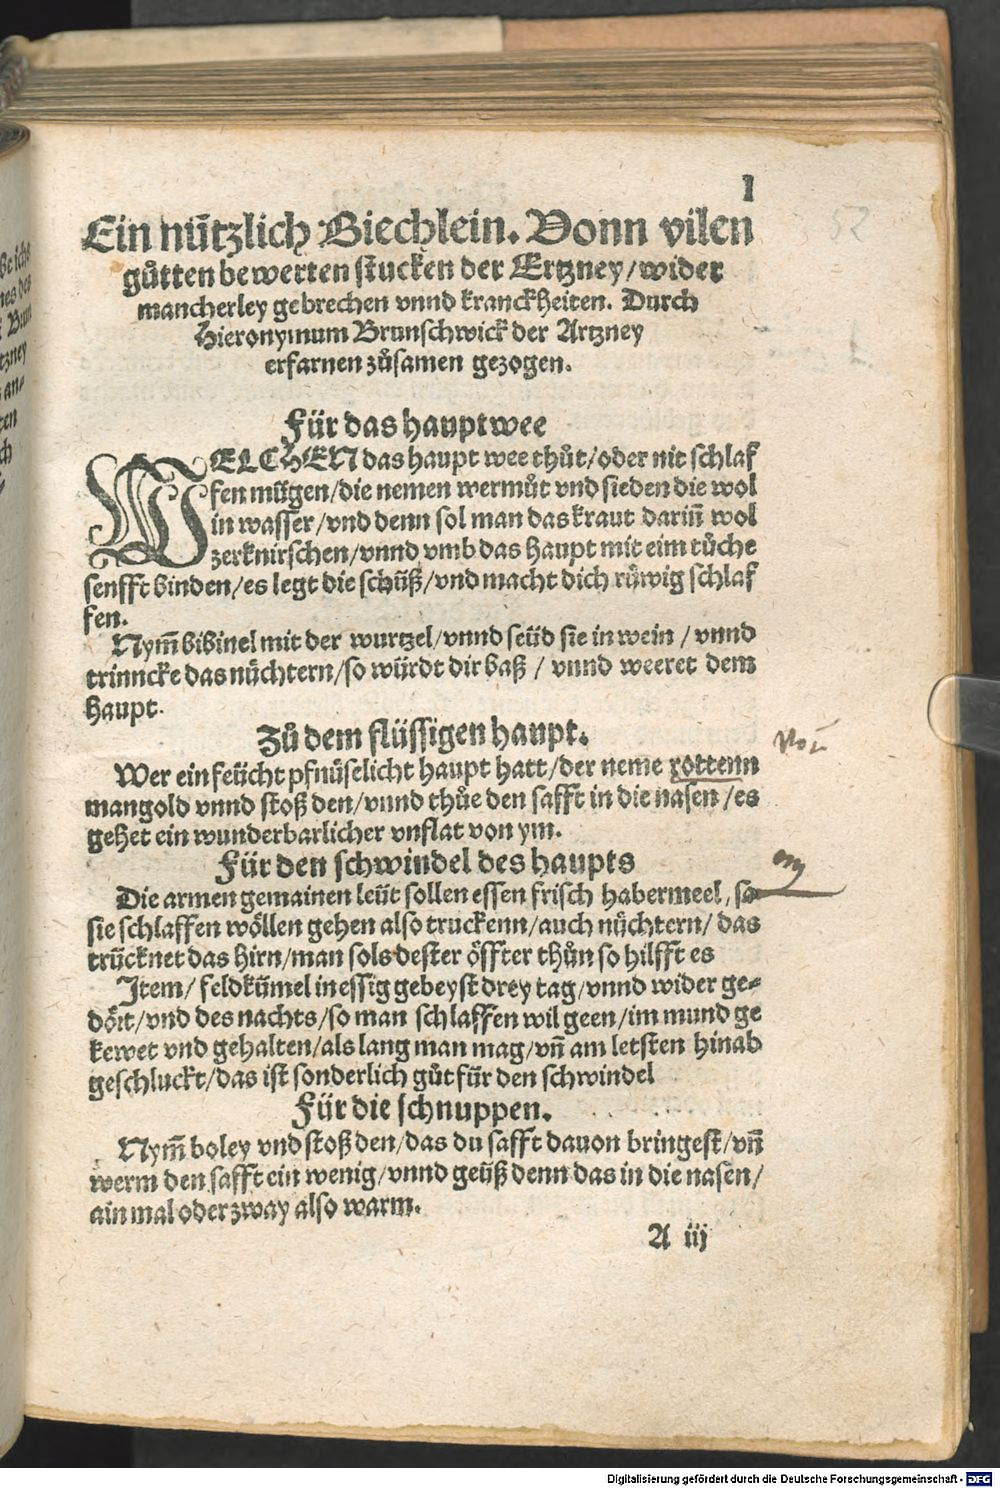 1
52
Ein nützlich Biechlein. Vonn vilen
gůtten bewerten stucken der Ertzney/wider
mancherley gebrechen vnnd kranckheiten. Durch
Hieronymum Brunschwick der Artzney
erfarnen zůsamen gezogen.
Für das hauptwee
WELCHEN das haupt wee thůt/oder nit schlaf
fen mügen/die nemen wermůt vnd sieden die wol
in wasser/vnd denn sol man das kraut dariñ wol
zerknirschen/vnnd vmb das haupt mit eim tůche
senfft binden/es legt die schüß/vnd macht dich růwig schlaf
fen.
Nym̃ bibinel mit der wurtzel/vnnd seüd sie in wein / vnnd
trinncke das nůchtern/so würdt dir baß / vnnd weeret dem
haupt.
Zů dem flüssigen haupt.
Wer ein feücht pfnüselicht haupt hatt/der neme rottenn
mangold vnnd stoß den/vnnd thůe den safft in die nasen/es
gehet ein wunderbarlicher vnflat von ym.
Für den schwindel des haupts
Die armen gemainen leüt sollen essen frisch habermeel, so
sie schlaffen wöllen gehen also truckenn/auch nůchtern/ das
trücknet das hirn/man sols dester öffter thůn so hilfft es
Item/ feldkümel in essig gebeyst drey tag/vnnd wider ge-
dört/vnd des nachts/so man schlaffen wil geen/im mund ge
kewet vnd gehalten/als lang man mag/vñ am letsten hinab
geschluckt/das ist sonderlich gůt für den schwindel
Für die schnuppen.
Nym̃ boley vnd stoß den/das du safft dauon bringest/vñ
werm den safft ein wenig/vnnd geüß denn das in die nasen/
ain mal oder zway also warm.
A iij
Digitalisierung gefördert durch die Deutsche Forschungsgemeinschaft - DFG